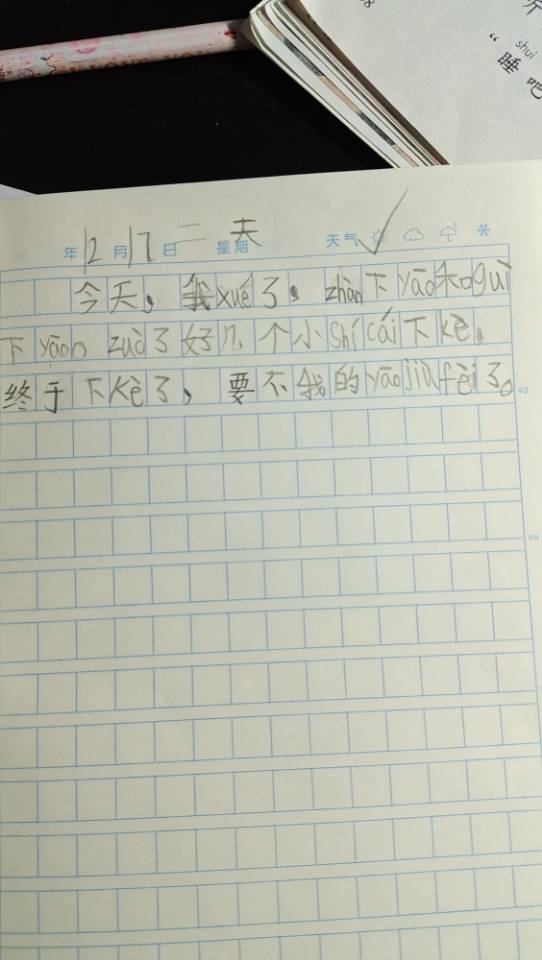 shuì
“睡吧
年12月17日 二 星期 天 天气
今天，我xué了，zhàn下yāo和guì
下yāo，zuò了好几个小shí cái下kè。
终于下kè了，要不我的yāo jiù fèi了。